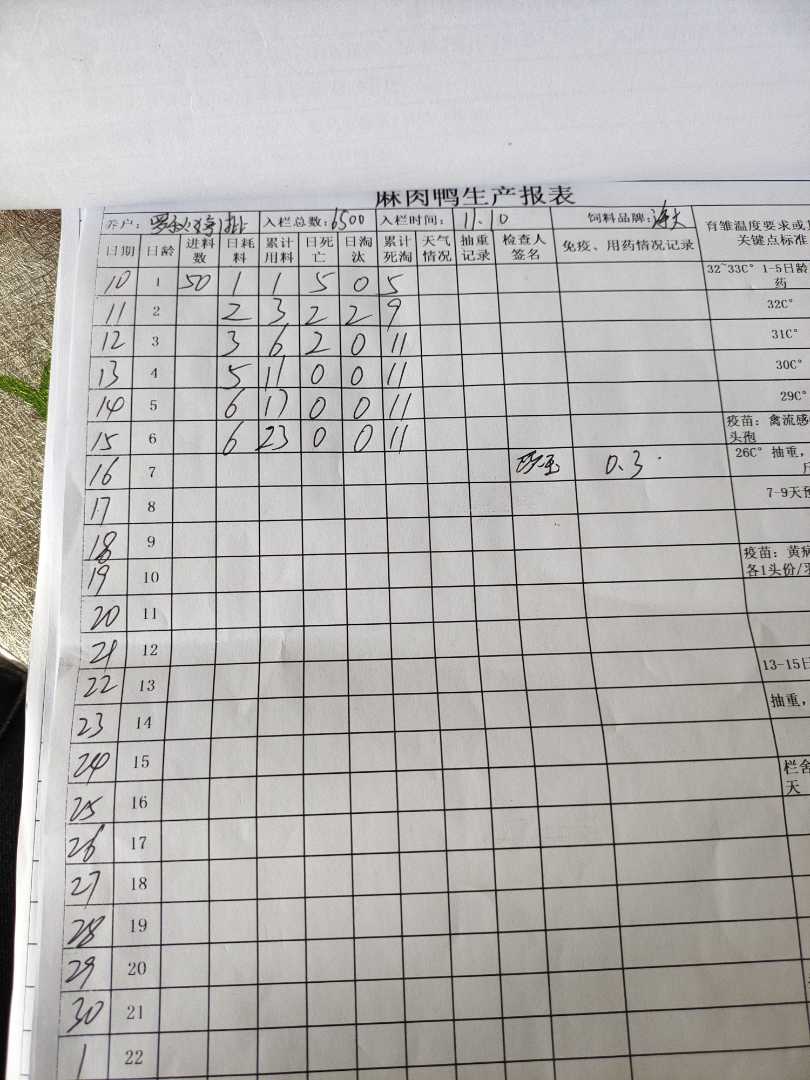 麻肉鸭生产报表
养户: 入栏总数:6500 入栏时间: 11.10 饲料品牌:海大 育雏温度要求或
关键点标准
日期 日龄 进料数 日耗料 累计用料 日死亡 日淘汰 累计死淘 天气情况 抽重记录 检查人签名 免疫、用药情况记录
10 1 50 1 1 5 0 5 32~33C° 1-5日龄
药
11 2 2 3 2 2 9 32C°
12 3 3 6 2 0 11 31C°
13 4 5 11 0 0 11 30C°
14 5 6 17 0 0 11 29C°
15 6 6 23 0 0 11 疫苗: 禽流感
头孢
16 7 0.3 26C° 抽重,
17 8 7-9天预
18 9
19 10 疫苗: 黄病
各1头份/羽
20 11
21 12
22 13 13-15日
23 14 抽重,
24 15 栏舍
天
25 16
26 17
27 18
28 19
29 20
30 21
1 22